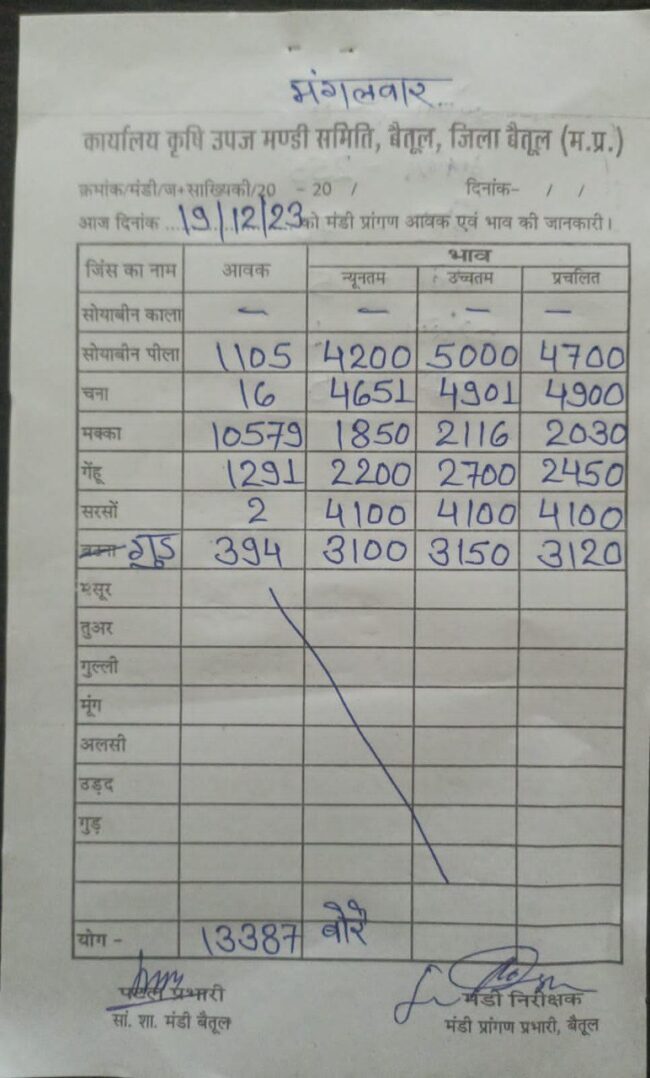 मंगलवार
कार्यालय कृषि उपज मण्डी समिति, बैतूल, जिला बैतूल (म.प्र.)
क्रमांक/मंडी/ज+साख्यिकी/20 - 20 / दिनांक- / /
आज दिनांक ...19/12/23 को मंडी प्रांगण आवक एवं भाव की जानकारी।
जिंस का नाम आवक भाव
न्यूनतम उच्चतम प्रचलित
सोयाबीन काला — — — —
सोयाबीन पीला 1105 4200 5000 4700
चना 16 4651 4901 4900
मक्का 10579 1850 2116 2030
गेंहू 1291 2200 2700 2450
सरसों 2 4100 4100 4100
गुड 394 3100 3150 3120
मसूर
तुअर
गुल्ली
मूंग
अलसी
उड़द
गुड़
योग - 13387 बोरे
प्रभारी मंडी निरीक्षक
सां. शा. मंडी बैतूल मंडी प्रांगण प्रभारी, बैतूल